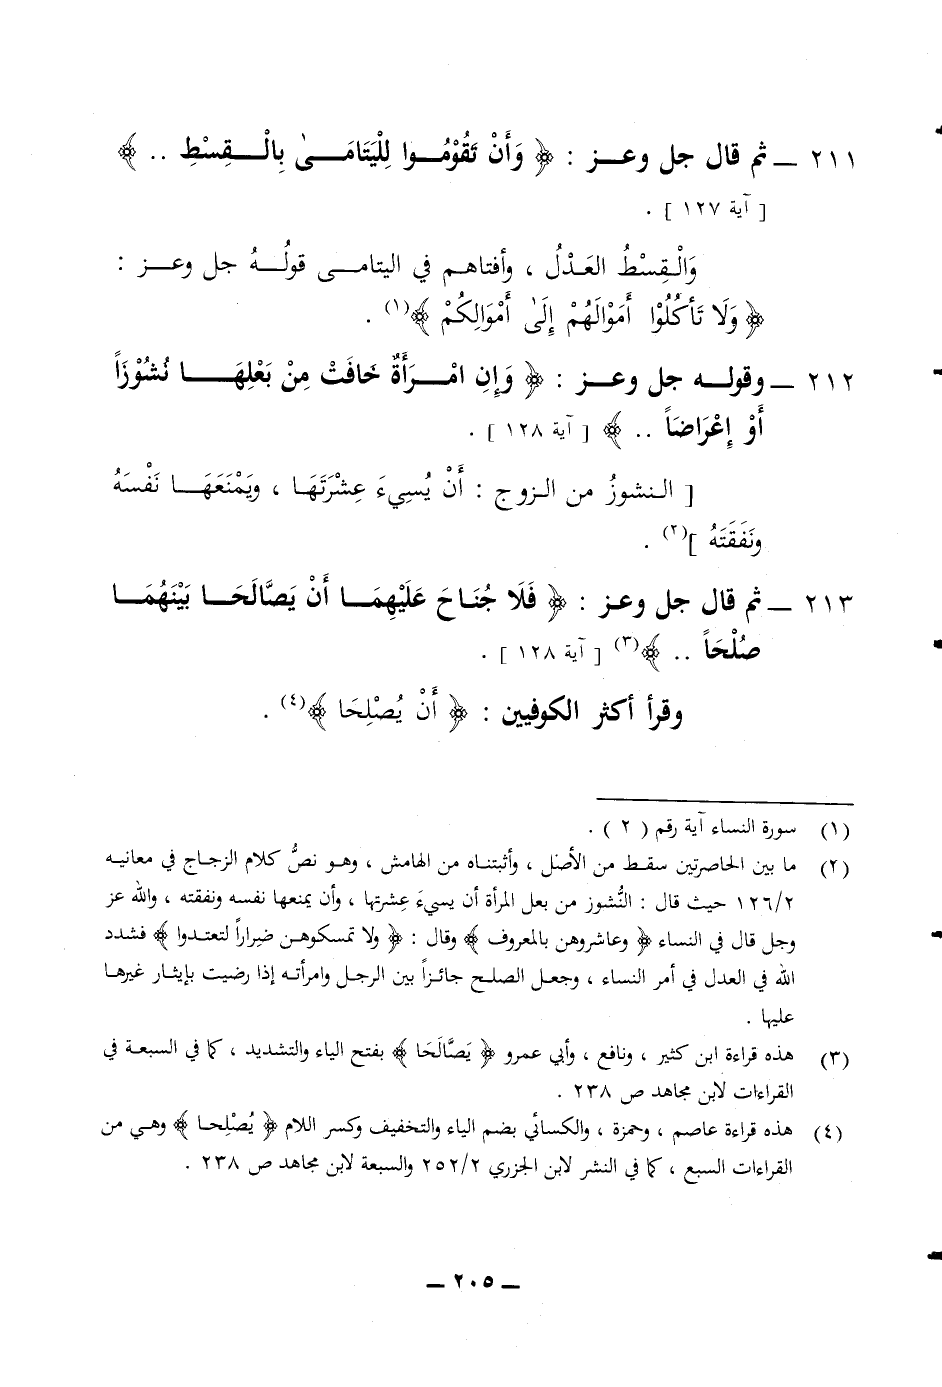 ٢١١ ــ ثم قال جل وعـــز : ﴿ وَأَنْ تَقُوْمُـــوا لِلْيَتَامَـــىٰ بِالْـــقِسْطِ .. ﴾
[ آية ١٢٧ ] .
وَالْـقِسْطُ العَـدْلُ ، وأفتاهـم في اليتامـــى قولُـــهُ جل وعـــز :
﴿ وَلَا تَأكُلُوْا أَمْوَالَهُمْ إِلَىٰ أَمْوَالِكُمْ ﴾(١) .
٢١٢ ــ وقولـــه جل وعـــز : ﴿ وَإِنِ امْـــرَأَةٌ خَافَتْ مِنْ بَعْلِهَـــا نُشُوْزَاً
أَوْ إِعْرَاضَاً .. ﴾ [ آية ١٢٨ ] .
[ الـنشوزُ من الـزوج : أَنْ يُسِيءَ عِشْرَتَهَـا ، ويَمْنَعَهَـــا نَفْسَهُ
ونَفَقَتَهُ ](٢) .
٢١٣ ــ ثم قال جل وعـز : ﴿ فَلَا جُنَـاحَ عَلَيْهِمَـــا أَنْ يَصَّالَحَـــا بَيْنَهُمَـــا
صُلْحَاً .. ﴾(٣) [ آية ١٢٨ ] .
وقرأ أكثر الكوفيين : ﴿ أَنْ يُصْلِحَا ﴾(٤) .
(١) سورة النساء آية رقم ( ٢ ) .
(٢) ما بين الحاصرتين سقط من الأصل ، وأثبتناه من الهامش ، وهـو نصُّ كلام الزجاج في معانيـه
١٢٦/٢ حيث قال : النُّشوز من بعل المرأة أن يسيءَ عِشرتها ، وأن يمنعها نفسه ونفقته ، والله عز
وجل قال في النساء ﴿ وعاشروهن بالمعروف ﴾ وقال : ﴿ ولا تمسكوهـن ضِراراً لتعتـدوا ﴾ فشدد
الله في العدل في أمر النساء ، وجعـل الصلـح جائـزاً بين الرجل وامرأتـه إذا رضيت بإيثـار غيرهـا
عليها .
(٣) هذه قراءة ابن كثير ، ونافع ، وأبي عمرو ﴿ يَصَّالَحَا ﴾ بفتح الياء والتشديد ، كما في السبعـة في
القراءات لابن مجاهد ص ٢٣٨ .
(٤) هذه قراءة عاصم ، وحمزة ، والكسائي بضم الياء والتخفيف وكسر اللام ﴿ يُصْلِحـا ﴾ وهـي من
القراءات السبع ، كما في النشر لابن الجزري ٢٥٢/٢ والسبعة لابن مجاهد ص ٢٣٨ .
ــ ٢٠٥ ــ